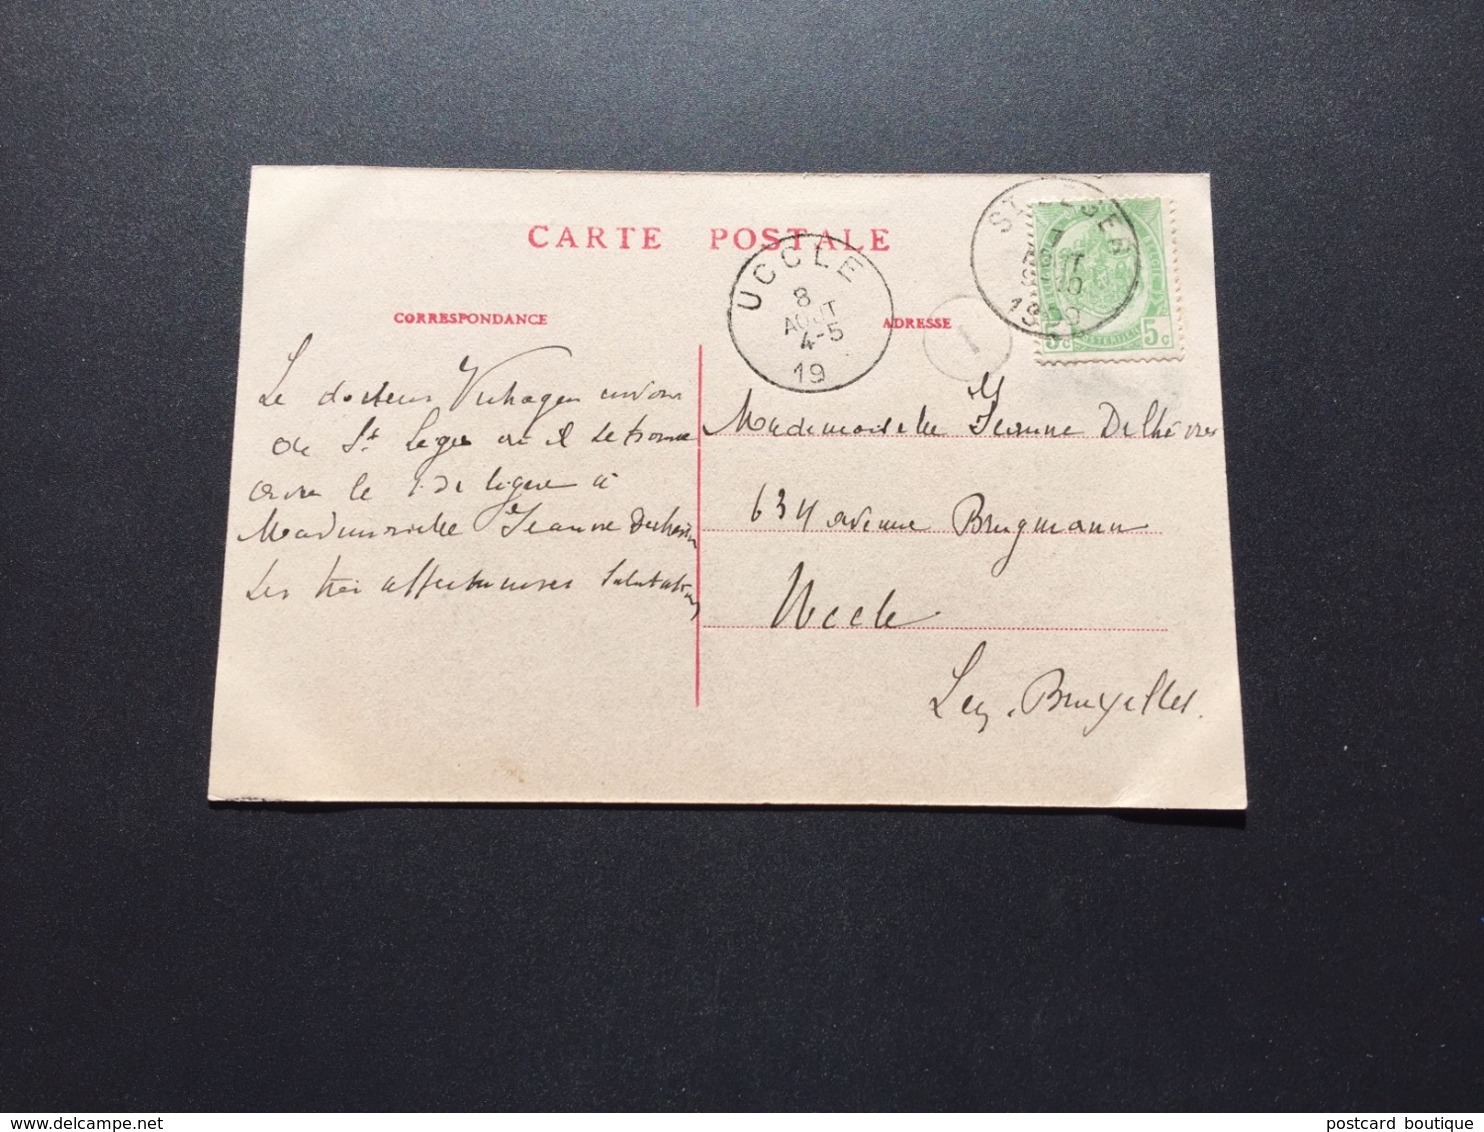 CARTE POSTALE
CORRESPONDANCE
ADRESSE
UCCLE
8
AOUT
4-5
19
ST LEGER
7
19
5c 5c
Le docteur Verhagen envoie
de St Leger où il se trouve
avec le de ligne à
Mademoiselle Jeanne
Ses très affectueuses salutations
Mademoiselle Jeanne
634 avenue Brugmann
Uccle
Lez. Bruxelles.
delcampe.net
postcard boutique